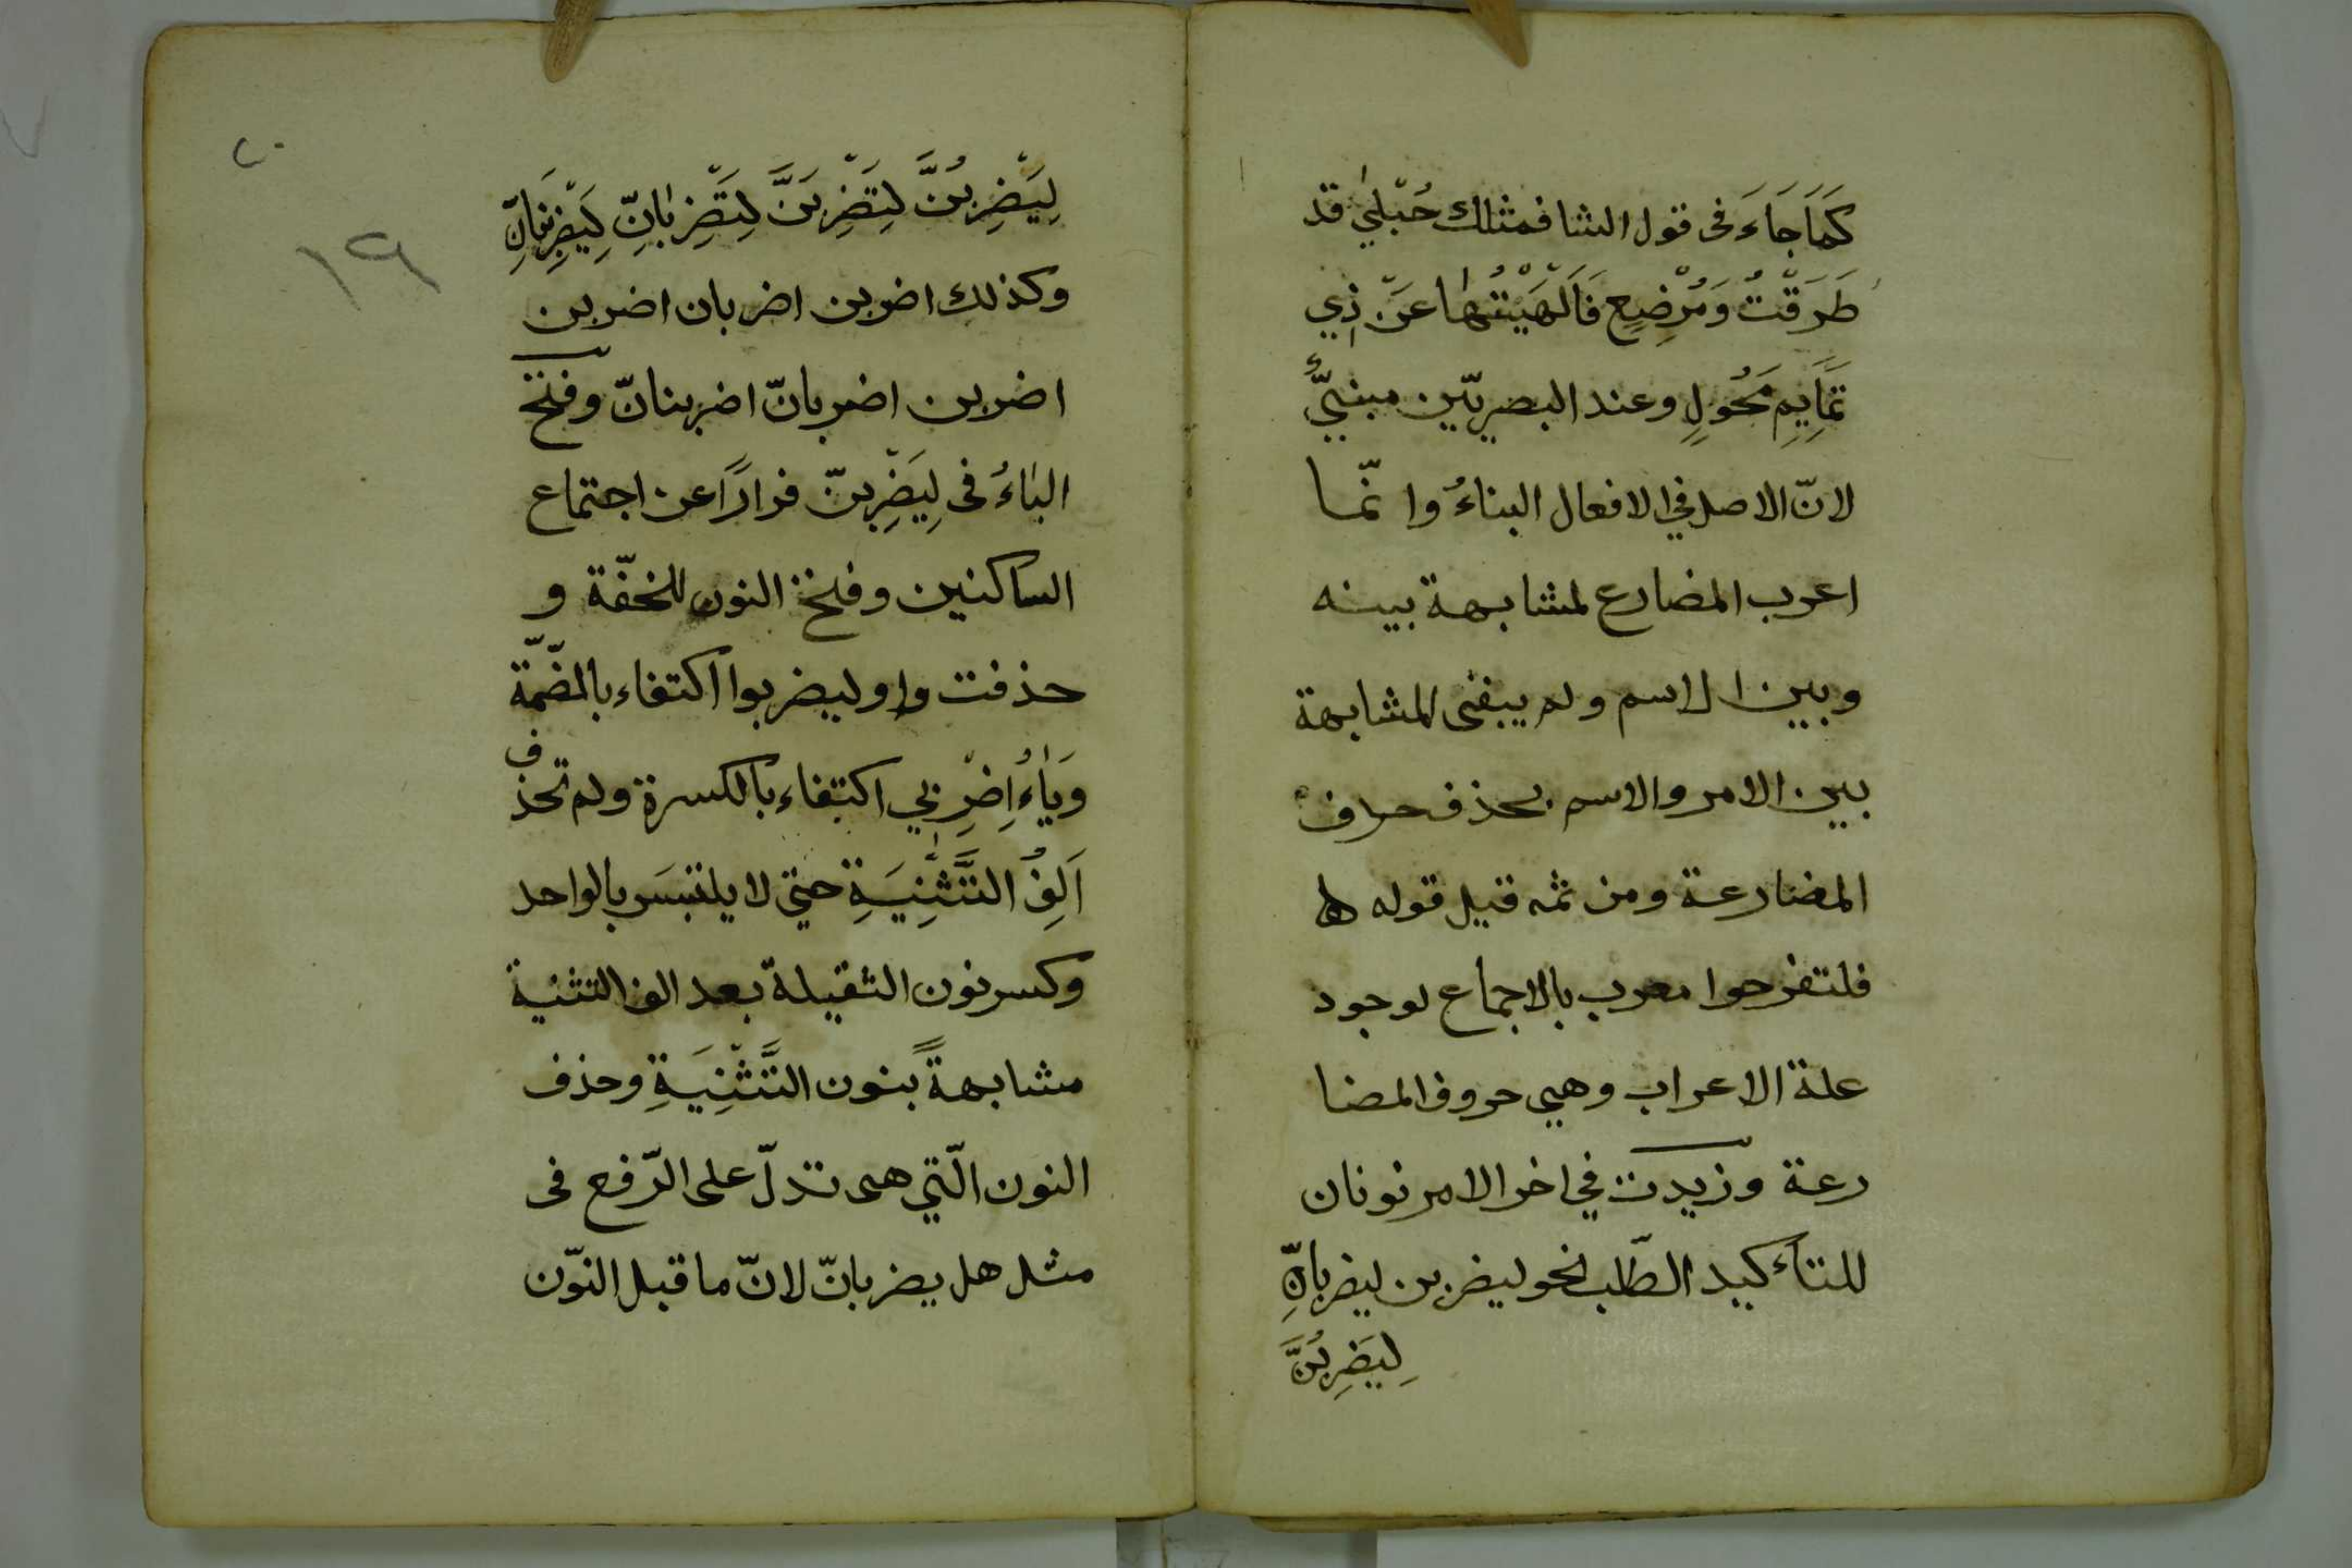 كَمَا جَاءَ فى قول الشا فمثلك حُبْلىٰ قد
طَرَقْتُ وَمُرْضِعٍ فَاَلْهَيْتُهٰا عَنْ ذِي
تَمَايِمِ مَحُولٍ وعند البصريّين مبنىٌّ
لانّ الاصل في الافعال البناءُ وانّما
اعرب المضارع لمشابهة بينه
وبين الاسم ولم يبقى المشابهة
بين الامر والاسم بحذف حرف
المضارعة ومن ثمه قيل قوله
فلتفرحوا معرب بالاجماع لوجود
علة الاعراب وهي حروف المضا
رعة وزيدت في اخر الامر نونان
للتاءكيد الطّلب نحو ليضربن ليضربانِّ
لِيَضرِبُنَّ
٢٠
١٩
لِيَضْرِبُنَّ لِتَضْرِبَنَّ لِتَضْرِبٰانِّ لِيَضْرِبْنَانِّ
وكذلك اضربن اضربان اضربن
اضربن اضربانّ اضربنانّ وفتح
البٰاءُ فى لِيَضْرِبنّ فرارًا عن اجتماع
الساكنين وفتح النون للخفّة و
حذفت واو ليضربوا اكتفاء بالضّمّة
وَيٰاءُ اِضْرِبي اكتفاء بالكسرة ولم تحذف
اَلِفُ التَّثْنِيَةِ حتي لا يلتبسَ بالواحد
وكسر نون الثقيلة بعد الف التثنية
مشابهةً بنون التَّثْنِيَةِ وحذف
النون الّتي هى تدلّ على الرّفع فى
مثل هل يضربانّ لانّ ما قبل النّون